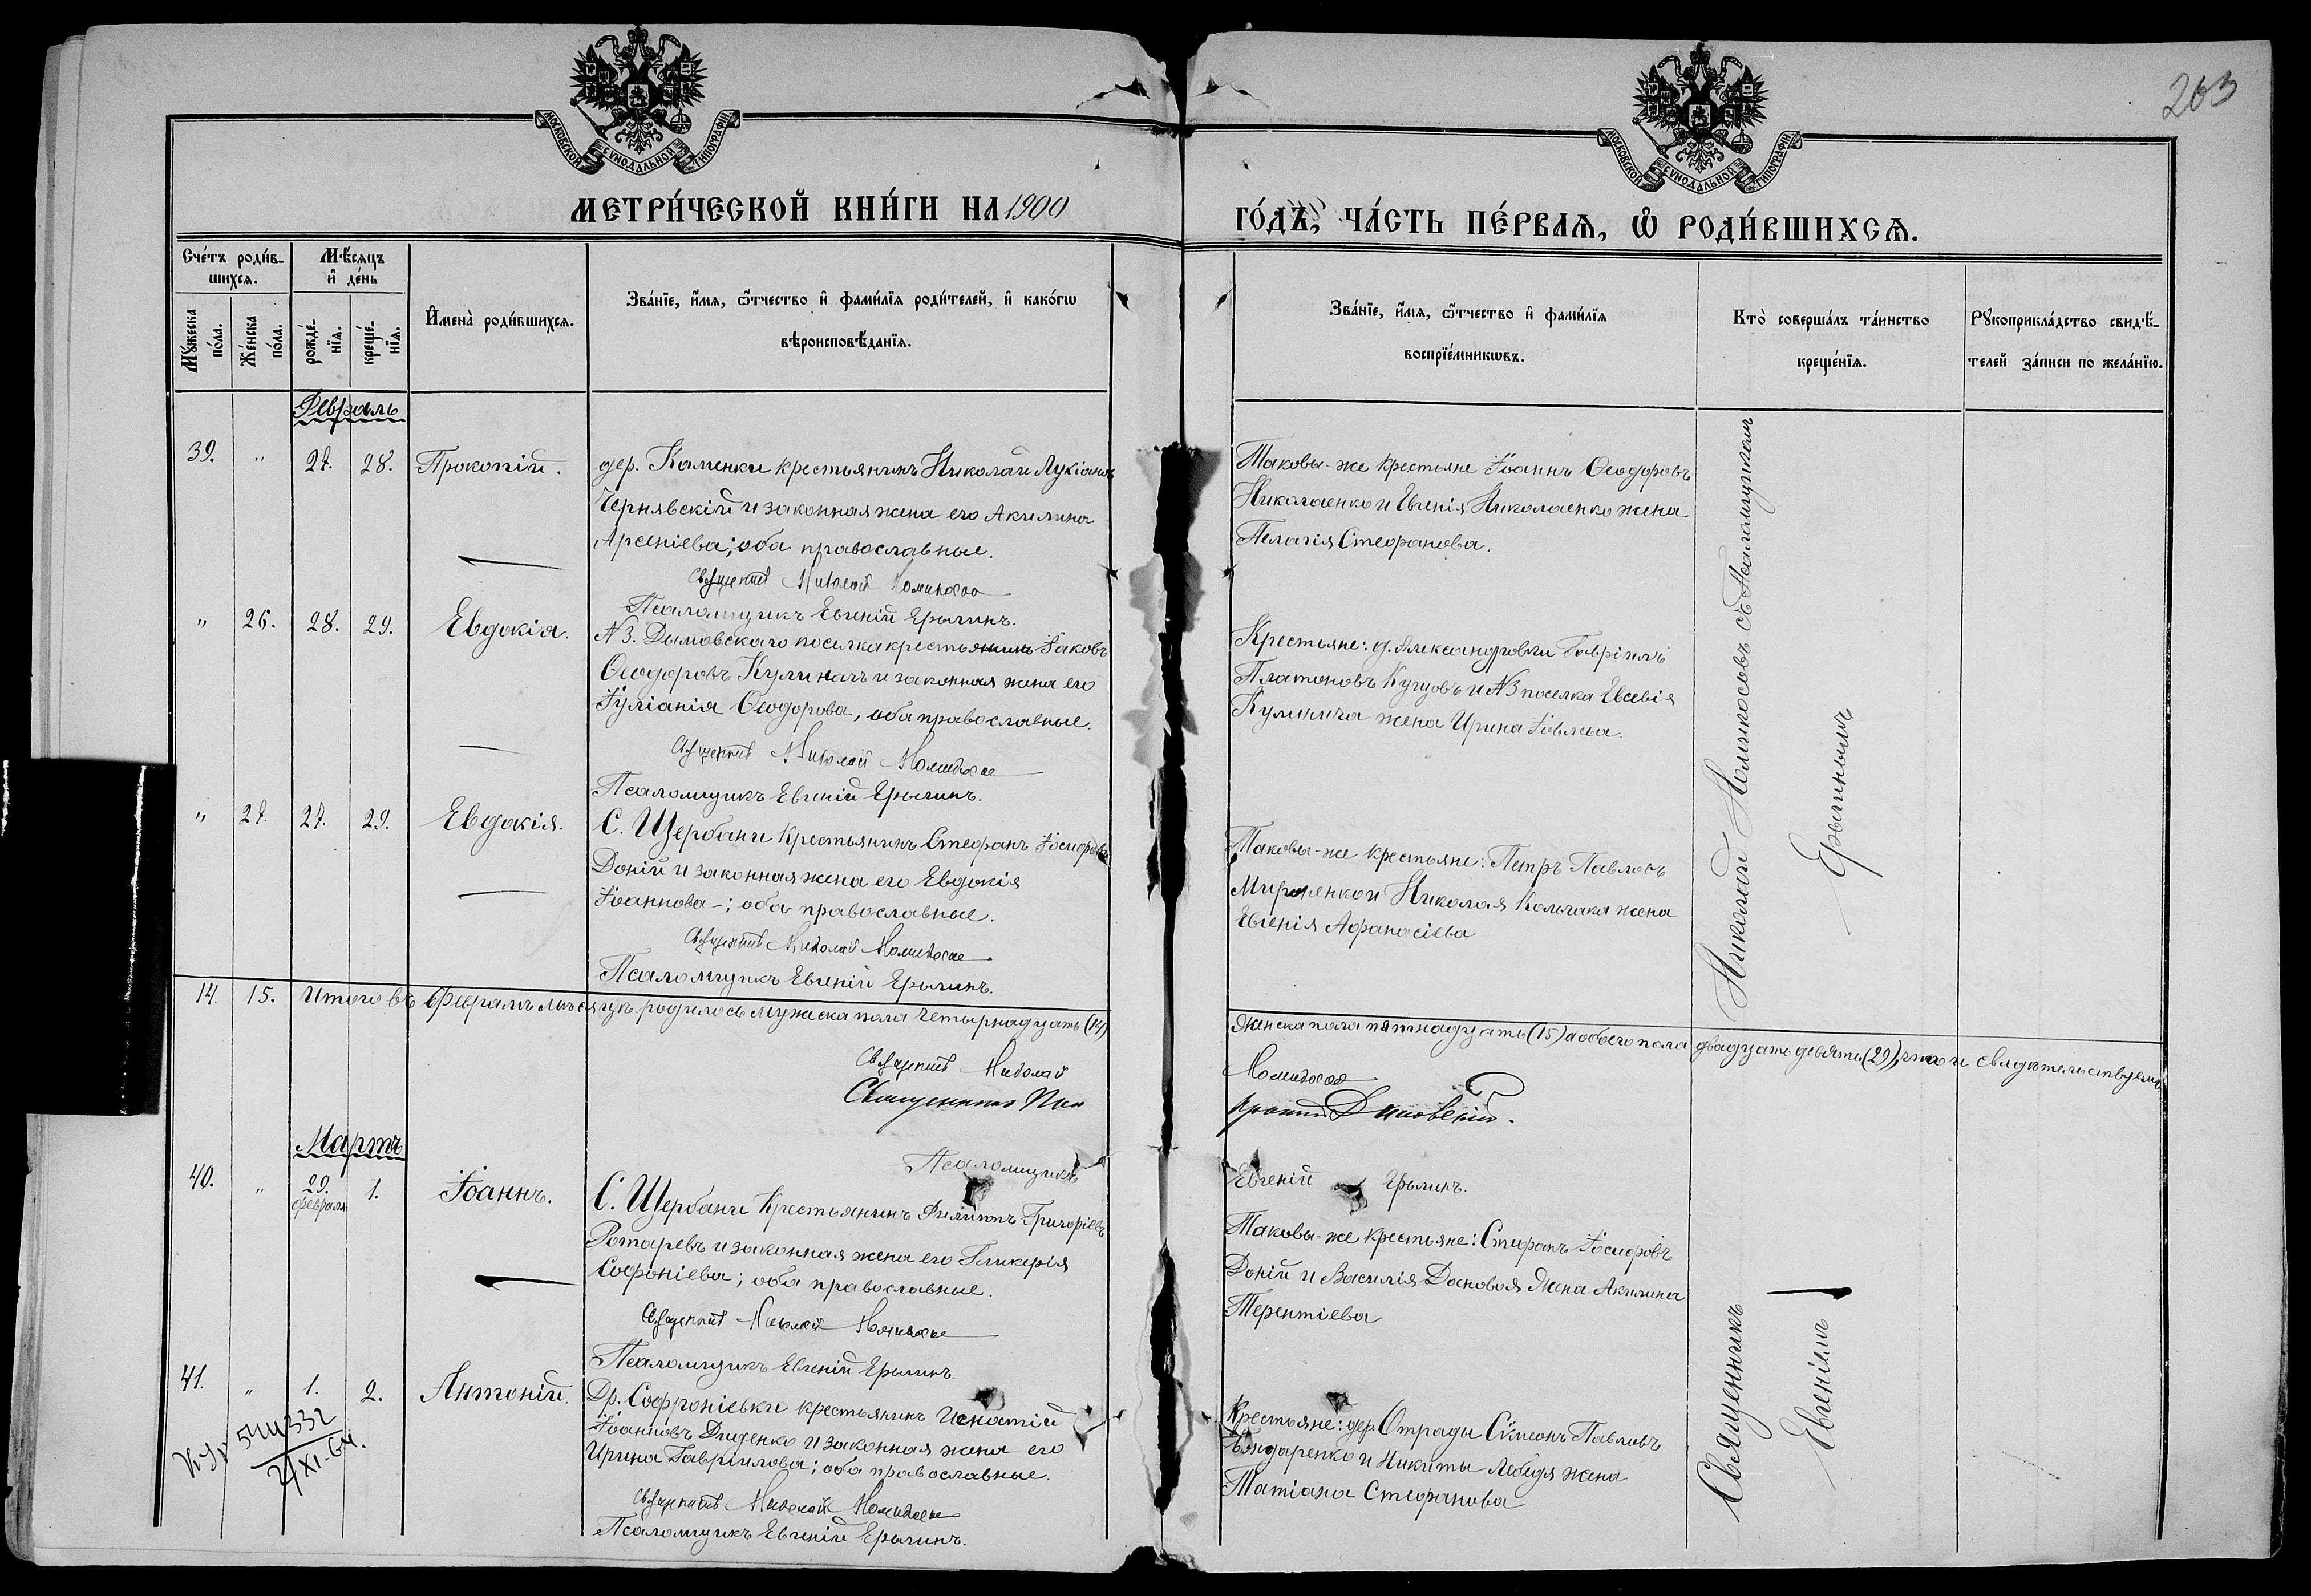 263
МОСКОВСКОЙ СѴНОДАЛЬНОЙ ТИПОГРАФІИ
МОСКОВСКОЙ СѴНОДАЛЬНОЙ ТИПОГРАФІИ
МЕТРИ́ЧЕСКОЙ КНИ́ГИ НА 1900
ГО́ДЪ, ЧА́СТЬ ПЕ́РВАѦ, Ѡ҆ РОДИ́ВШИХСѦ.
Сче́тъ роди́в-
шихсѧ.
Мѣ́сяцъ
и҆ де́нь
Мꙋ́жеска
по́ла.
Же́нска
по́ла.
рожде́-
нїѧ.
креще́-
нїѧ.
И҆мена̀ роди́вшихсѧ.
Зва́нїе, и҆́мѧ, ѻ҆́тчество и҆ фами́лїѧ роди́телей, и҆ како́гѡ
вѣроисповѣ́данїѧ.
Зва́нїе, и҆́мѧ, ѻ҆́тчество и҆ фами́лїѧ
воспрїе́мникѡвъ.
Кто̀ соверша́лъ та́инство
креще́нїѧ.
Рꙋкоприкла́дство свидѣ́-
телей за́писи по жела́нїю.
Февраль
39. " 27. 28. Прокопій.
дер. Каменки крестьянинъ Николай Лукіановъ
Чернявскій и законная жена его Акилина
Арсеніева; оба православные.
Священникъ Николай
Псаломщикъ Евгеній Ерылинъ.
Таковы-же крестьяне Іоаннъ Ѳеодоровъ
Николаенко и Евгенія Николаенко жена
Пелагія Стефанова.
" 26. 28. 29. Евдокія.
N 3. Дымовскаго поселка крестьянинъ Іаковъ
Ѳеодоровъ Куличъ и законная жена его
Іуліанія Ѳеодорова, оба православные.
Священникъ Николай
Псаломщикъ Евгеній Ерылинъ.
Крестьяне: д. Александровки Гавріилъ
Платоновъ Купцовъ и N3 поселка Евсевія
Кулинича жена Ирина Іовлева.
" 27. 27. 29. Евдокія.
С. Щербани крестьянинъ Стефанъ Іосифовъ
Доній и законная жена его Евдокія
Іоаннова; оба православные.
Священникъ Николай
Псаломщикъ Евгеній Ерылинъ.
Таковы-же крестьяне: Петръ Павловъ
Мироненко и Николая Колчака жена
Евгенія Аѳанасіева
14. 15. Итого въ Февралѣ мѣсяцѣ родилось мужеска пола четырнадцать (14)
женска пола пятнадцать (15) а обоего пола двадцать девять (29), что и свидѣтельствуемъ
Священникъ Николай
Священникъ
Псаломщикъ
Евгеній Ерылинъ.
Мартъ
40. " 29. февраля 1. Іоаннъ.
С. Щербани крестьянинъ Филиппъ Григоріевъ
Ротаревъ и законная жена его Гликерія
Софоніева; оба православные.
Священникъ Николай
Псаломщикъ Евгеній Ерылинъ.
Таковы-же крестьяне: Стефанъ Іосифовъ
Доній и Василія жена Акилина
Терентіева
41. " 1. 2. Антоній.
Др. Софроніевки крестьянинъ Игнатій
Іоанновъ Диденко и законная жена его
Ирина Гавриилова; оба православные.
Священникъ Николай
Псаломщикъ Евгеній Ерылинъ.
Крестьяне: дер. Отрады Сѵмеонъ Павловъ
Бондаренко и Никиты Лебедя жена
Татіана Стефанова
Священникъ Николай съ Псаломщикомъ
Евгеніемъ Ерылинымъ